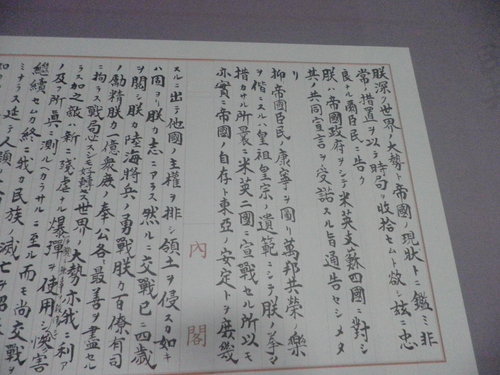 朕深ク世界ノ大勢ト帝國ノ現狀トニ鑑ミ非
常ノ措置ヲ以テ時局ヲ收拾セムト欲シ茲ニ忠
良ナル爾臣民ニ告ク
朕ハ帝國政府ヲシテ米英支蘇四國ニ對シ
其ノ共同宣言ヲ受諾スル旨通告セシメタ
リ
抑帝國臣民ノ康寧ヲ圖リ萬邦共榮ノ樂
ヲ偕ニスルハ皇祖皇宗ノ遺範ニシテ朕ノ拳々
措カサル所曩ニ米英二國ニ宣戰セル所以モ
亦實ニ帝國ノ自存ト東亞ノ安定トヲ庶幾
內閣
スルニ出テ他國ノ主權ヲ排シ領土ヲ侵スカ如キ
ハ固ヨリ朕カ志ニアラス然ルニ交戰已ニ四歲
ヲ閱シ朕カ陸海將兵ノ勇戰朕カ百僚有司
ノ勵精朕カ一億衆庶ノ奉公各最善ヲ盡セル
ニ拘ラス戰局必スシモ好轉セス世界ノ大勢亦我ニ利ア
ラス加之敵ハ新ニ殘虐ナル爆彈ヲ使用シ慘害
ノ及フ所眞ニ測ルヘカラサルニ至ル而モ尚交戰ヲ
繼續セムカ終ニ我カ民族ノ滅亡ヲ招
ミナラス延テ人類ノ